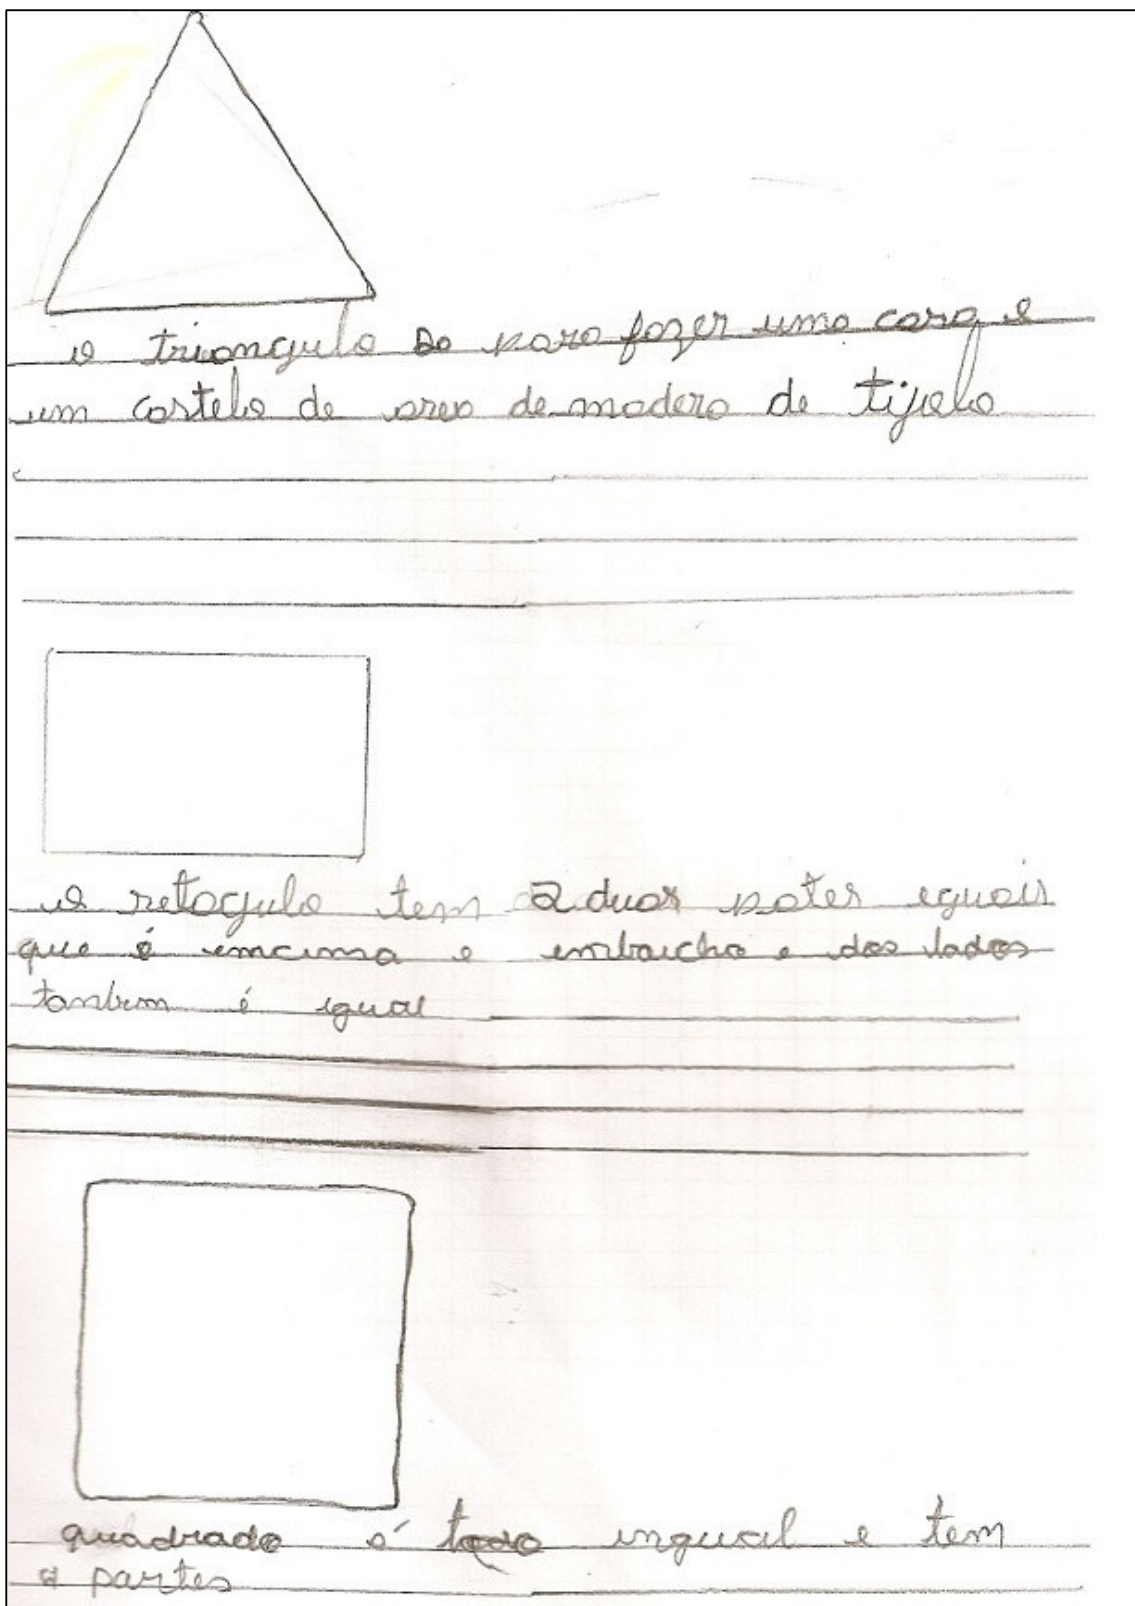 o triangulo Do para fazer uma casa e
um castelo de area de madera de tijolo
o retagulo tem 2 duas pates eguais
que é emcima e embaicho e dos lados
tanbem é igual
quadrado é todo ingual e tem
4 partes